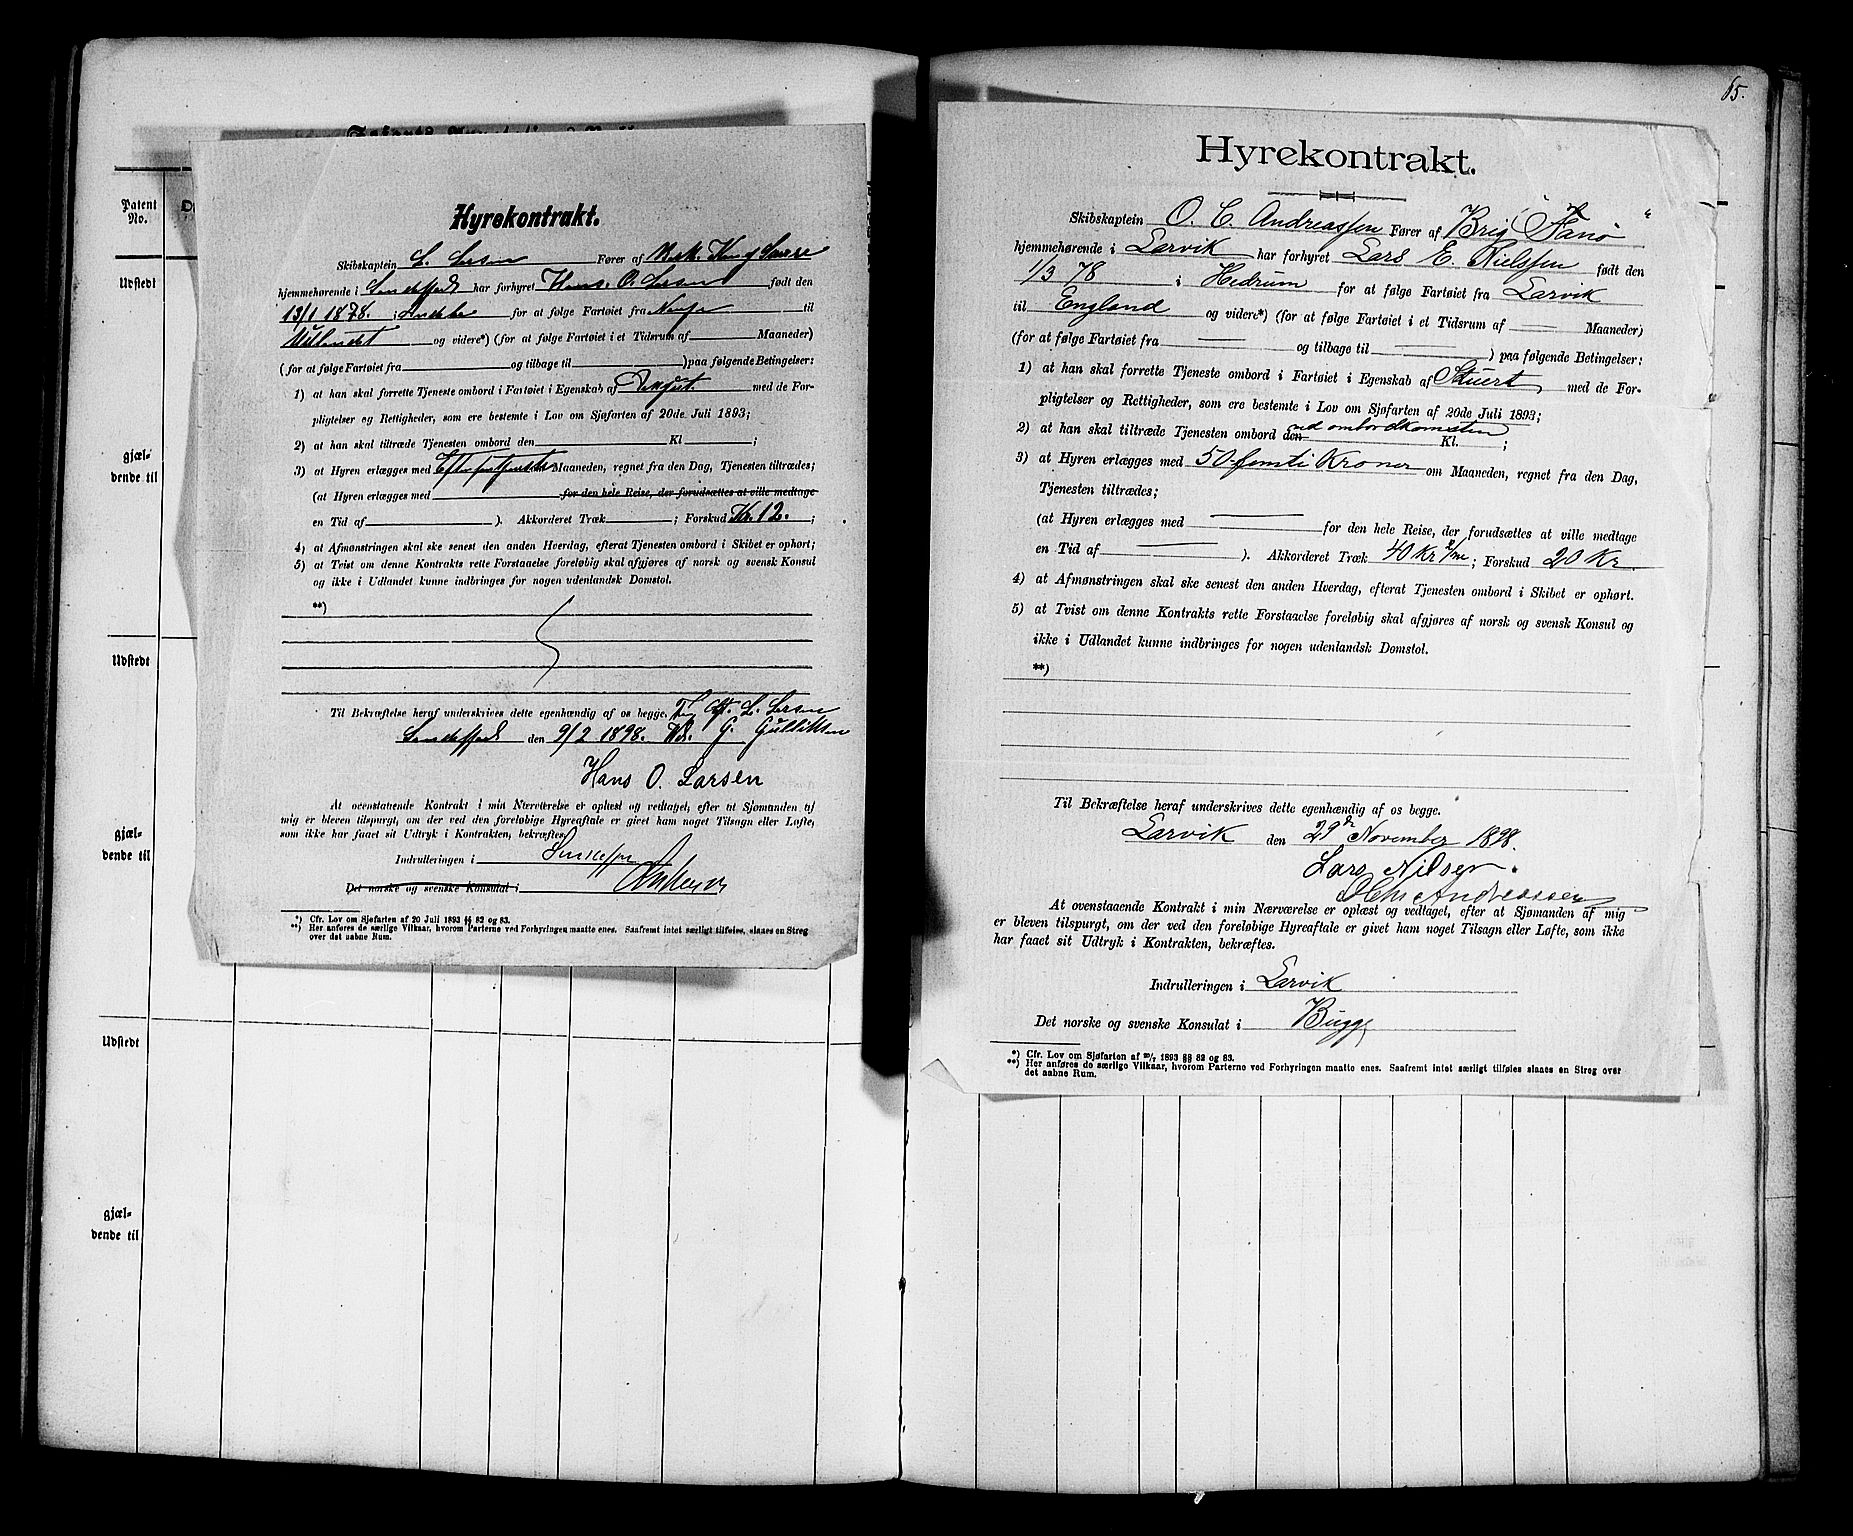 65.
Patent
No.
Udstedt
gjæl-
dende til
Udstedt
gjæl-
dende til
Udstedt
gjæl-
dende til
Hyrekontrakt.
Skibskaptein L. Larsen Fører af
hjemmehørende i har forhyret Hans O. Larsen født den
13/1 1878. i for at følge Fartøiet fra til
Udlandet og videre*) (for at følge Fartøiet i et Tidsrum af Maaneder)
(for at følge Fartøiet fra og tilbage til ) paa følgende Betingelser:
1) at han skal forrette Tjeneste ombord i Fartøiet i Egenskab af med de For-
pligtelser og Rettigheder, som ere bestemte i Lov om Sjøfarten af 20de. Juli 1893;
2) at han skal tiltræde Tjenesten ombord den Kl ;
3) at Hyren erlægges med Maaneden, regnet fra den Dag, Tjenesten tiltrædes;
(at Hyren erlægges med for den hele Reise, der forudsættes at ville medtage
en Tid af ). Akkorderet Træk ; Forskud Kr. 12. ;
4) at Afmønstringen skal ske senest den anden Hverdag, efterat Tjenesten ombord i Skibet er ophørt;
5) at Tvist om denne Kontrakts rette Forstaaelse foreløbig skal afgjøres af norsk og svensk Konsul
og ikke i Udlandet kunne indbringes for nogen udenlandsk Domstol.
**)
Til Bekræftelse heraf underskrives dette egenhændig af os begge. L. Larsen
den 9/2 1898. G. Gulliksen
Hans O. Larsen
At ovenstaaende Kontrakt i min Nærværelse er oplæst og vedtaget, efter at Sjømanden af
mig er bleven tilspurgt, om der ved den foreløbige Hyreaftale er givet ham noget Tilsagn eller Løfte,
som ikke har faaet sit Udtryk i Kontrakten, bekræftes.
Indrulleringen i
Det norske og svenske Konsulat i
*) Cfr. Lov om Sjøfarten af 20 Juli 1893 §§ 82 og 83.
**) Her anføres de særlige Vilkaar, hvorom Parterne ved Forhyringen maatte enes. Saafremt intet særligt tilføies, slaaes en Streg
over det aabne Rum.
Hyrekontrakt.
Skibskaptein O. C. Andreassen Fører af Brig "Fanø"
hjemmehørende i Larvik har forhyret Lars E. Nielsen født den
1/3 78 i Hedrum for at følge Fartøiet fra Larvik
til England og videre*) (for at følge Fartøiet i et Tidsrum af Maaneder)
(for at følge Fartøiet fra og tilbage til ) paa følgende Betingelser:
1) at han skal forrette Tjeneste ombord i Fartøiet i Egenskab af Stuert med de For-
pligtelser og Rettigheder, som ere bestemte i Lov om Sjøfarten af 20de Juli 1893;
2) at han skal tiltræde Tjenesten ombord den ved ombordkomsten Kl. ;
3) at Hyren erlægges med 50 femti Kroner om Maaneden, regnet fra den Dag,
Tjenesten tiltrædes;
(at Hyren erlægges med for den hele Reise, der forudsættes at ville medtage
en Tid af ). Akkorderet Træk 40 Kr ; Forskud 20 Kr.
4) at Afmønstringen skal ske senest den anden Hverdag, efterat Tjenesten ombord i Skibet er ophørt.
5) at Tvist om denne Kontrakts rette Forstaaelse foreløbig skal afgjøres af norsk og svensk Konsul og
ikke i Udlandet kunne indbringes for nogen udenlandsk Domstol.
**)
Til Bekræftelse heraf underskrives dette egenhændig af os begge.
Larvik den 29de November 1898.
Lars Nilsen.
O Chr Andreassen
At ovenstaaende Kontrakt i min Nærværelse er oplæst og vedtaget, efter at Sjømanden af mig
er bleven tilspurgt, om der ved den foreløbige Hyreaftale er givet ham noget Tilsagn eller Løfte, som ikke
har faaet sit Udtryk i Kontrakten, bekræftes.
Indrulleringen i Larvik
Det norske og svenske Konsulat i Bugge
*) Cfr. Lov om Sjøfarten af 20/7 1893 §§ 82 og 83.
**) Her anføres de særlige Vilkaar, hvorom Parterne ved Forhyringen maatte enes. Saafremt intet særligt tilføies slaaes en Streg over
det aabne Rum.